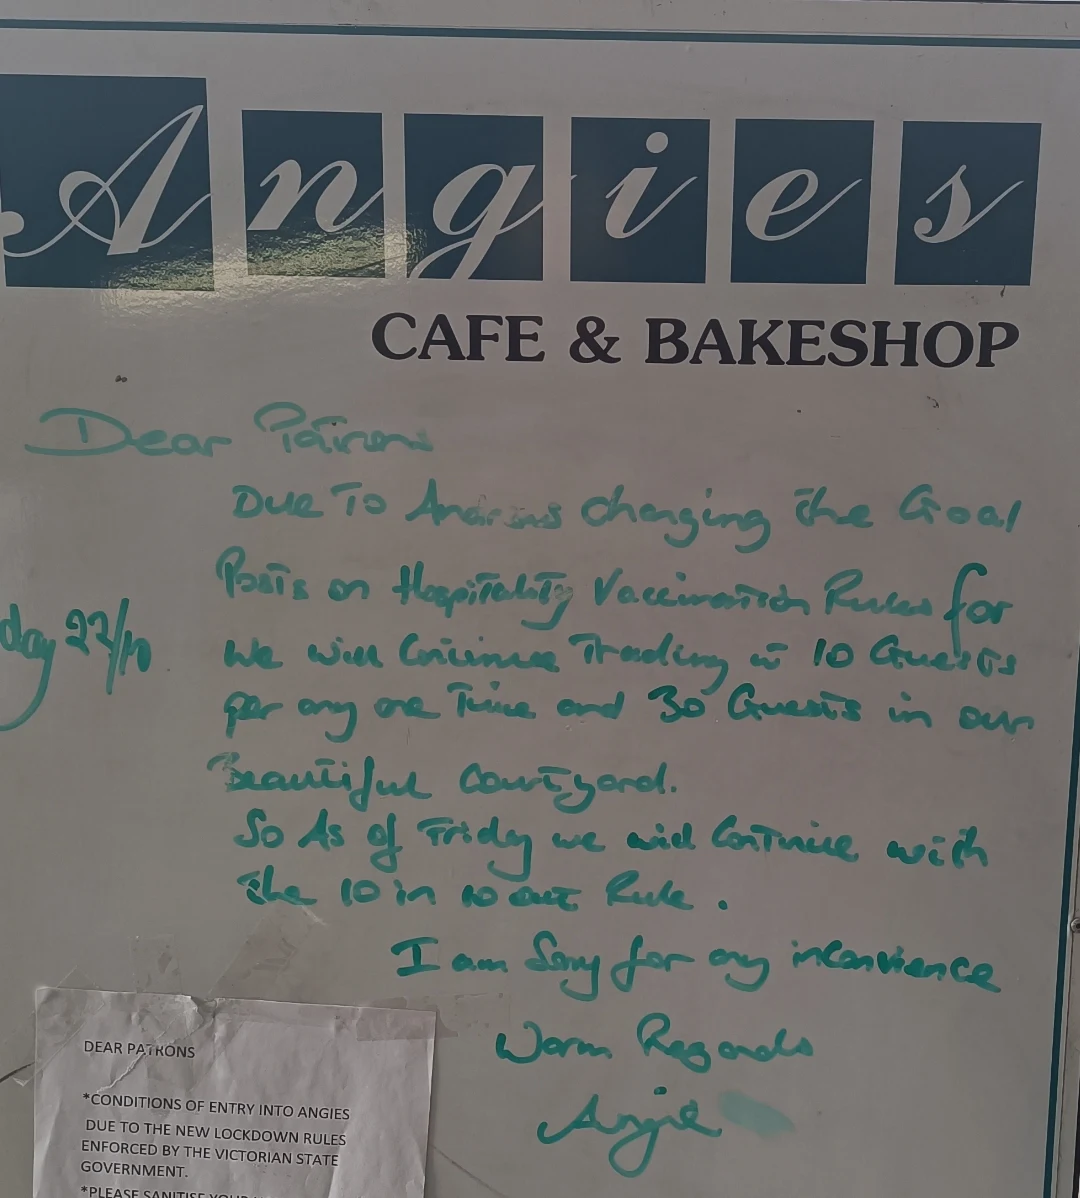 Angies
CAFE & BAKESHOP
Dear Patrons
Due To Andrews changing the Goal
Posts on Hospitality Vaccination Rules for
day 22/10
We will Continue Trading 10 Guests
per any one Time and 30 Guests in our
Beautiful Courtyard.
So As of Friday we will Continue with
the 10 in 10 out Rule.
I am Sorry for any inconvience
Warm Regards
Angie
DEAR PATRONS
*CONDITIONS OF ENTRY INTO ANGIES
DUE TO THE NEW LOCKDOWN RULES
ENFORCED BY THE VICTORIAN STATE
GOVERNMENT.
*PLEASE SANITISE YOUR